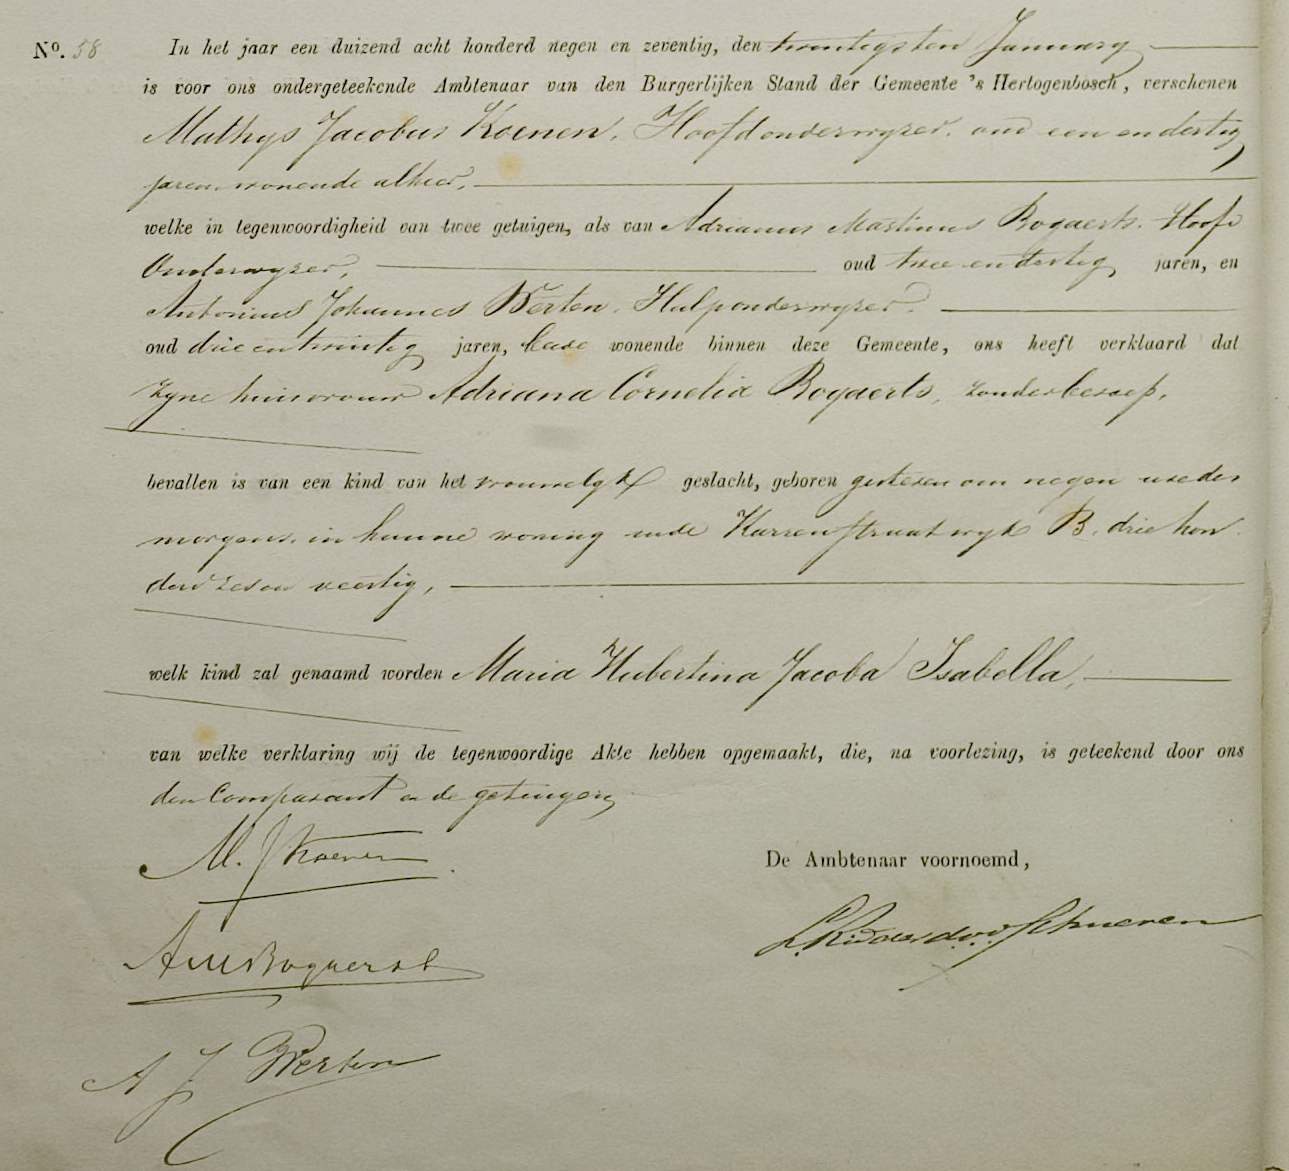 No. 58
In het jaar een duizend acht honderd negen en zeventig, den twintigsten January
is voor ons ondergeteekende Ambtenaar van den Burgerlijken Stand der Gemeente 's Hertogenbosch, verschenen
Mathys Jacobus Koenen, Hoofdonderwyzer, oud een en dertig
jaren wonende alhier,
welke in tegenwoordigheid van twee getuigen, als van Adrianus Martinus Bogaerts, Hoofd
Onderwyzer, oud twee en dertig jaren, en
Antonius Johannes Werten, Hulponderwyzer,
oud drie en twintig jaren, beide wonende binnen deze Gemeente, ons heeft verklaard dat
zyne huisvrouw Adriana Cornelia Bogaerts, zonder beroep,
bevallen is van een kind van het vrouwelyk geslacht, geboren gisteren om negen ure des
morgens, in hunne woning in de Karrenstraat wyk B. drie hon
derd zes en veertig,
welk kind zal genaamd worden Maria Hubertina Jacoba Isabella,
van welke verklaring wij de tegenwoordige Akte hebben opgemaakt, die, na voorlezing, is geteekend door ons
den Comparant en de getuigen,
M. J Koenen
De Ambtenaar voornoemd,
AM Bogaerts
A J Werten